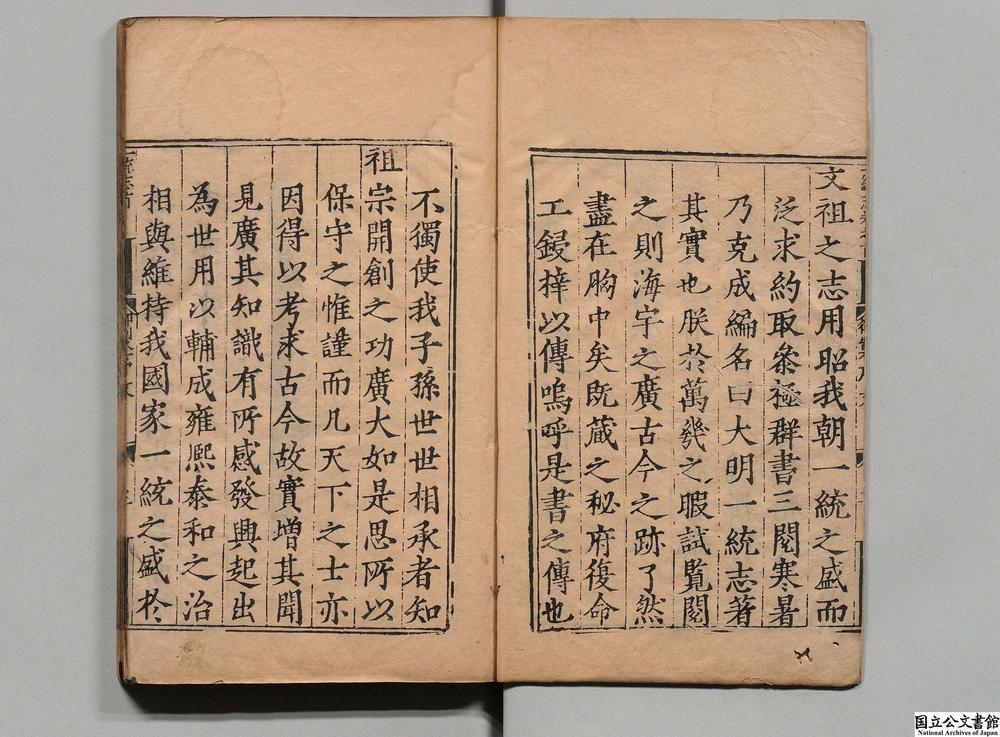 文祖之志用昭我朝一統之盛而
泛求約取叅極群書三閱寒暑
乃克成編名曰大明一統志著
其實也朕於萬幾之暇試覽閱
之則海宇之廣古今之跡了然
盡在胸中矣既蔵之秘府復命
工鋟梓以傳嗚呼是書之傳也
不獨使我子孫世世相承者知
祖宗開創之功廣大如是思所以
保守之惟謹而凡天下之士亦
因得以考求古今故實增其聞
見廣其知識有所感發興起出
為世用以輔成雍熈泰和之治
相與維持我國家一統之盛於
国立公文書館
National Archives of Japan